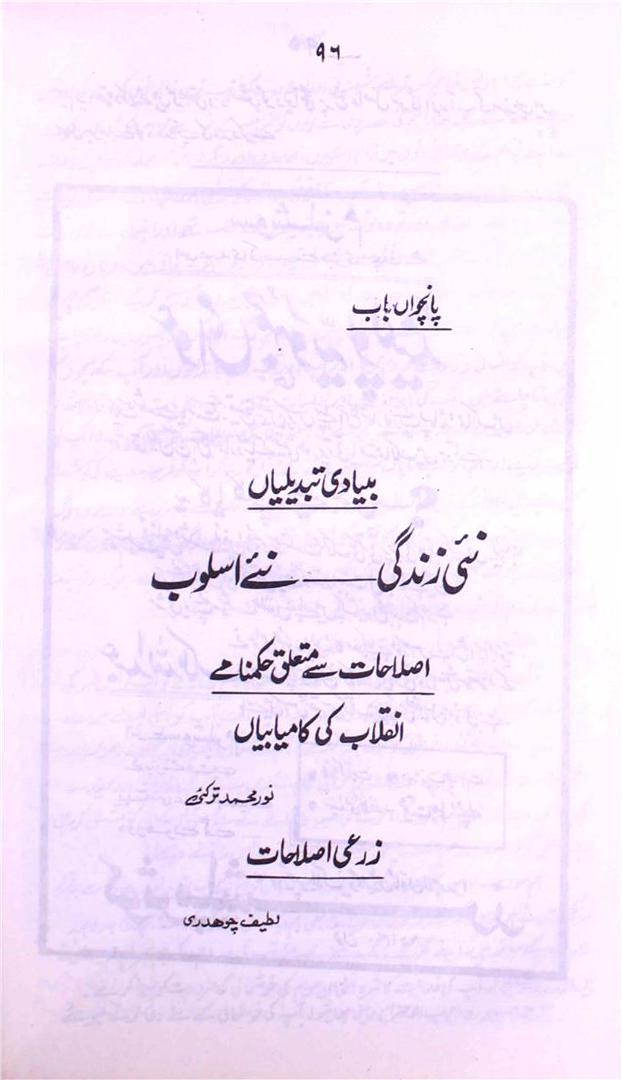 ۹۶
پانچواں باب
بنیادی تبدیلیاں
نئی زندگی ——— نئے اسلوب
اصلاحات سے متعلق حکمنامے
انقلاب کی کامیابیاں
نور محمد ترکئ
زرعی اصلاحات
لطیف چوہدری